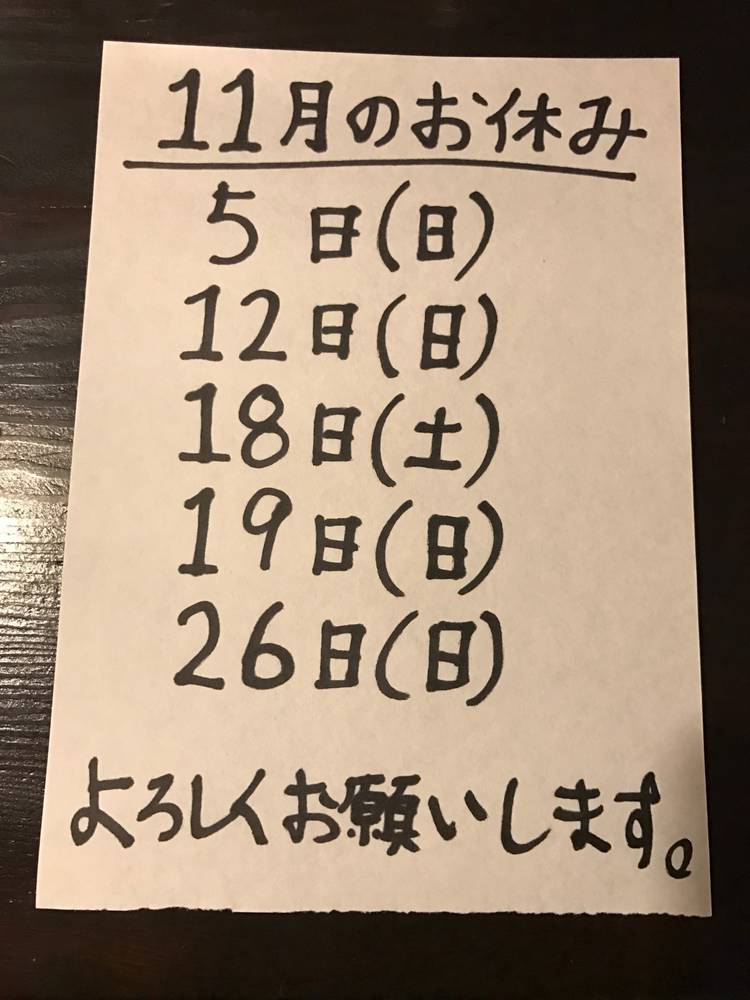 11月のお休み
5日(日)
12日(日)
18日(土)
19日(日)
26日(日)
よろしくお願いします。